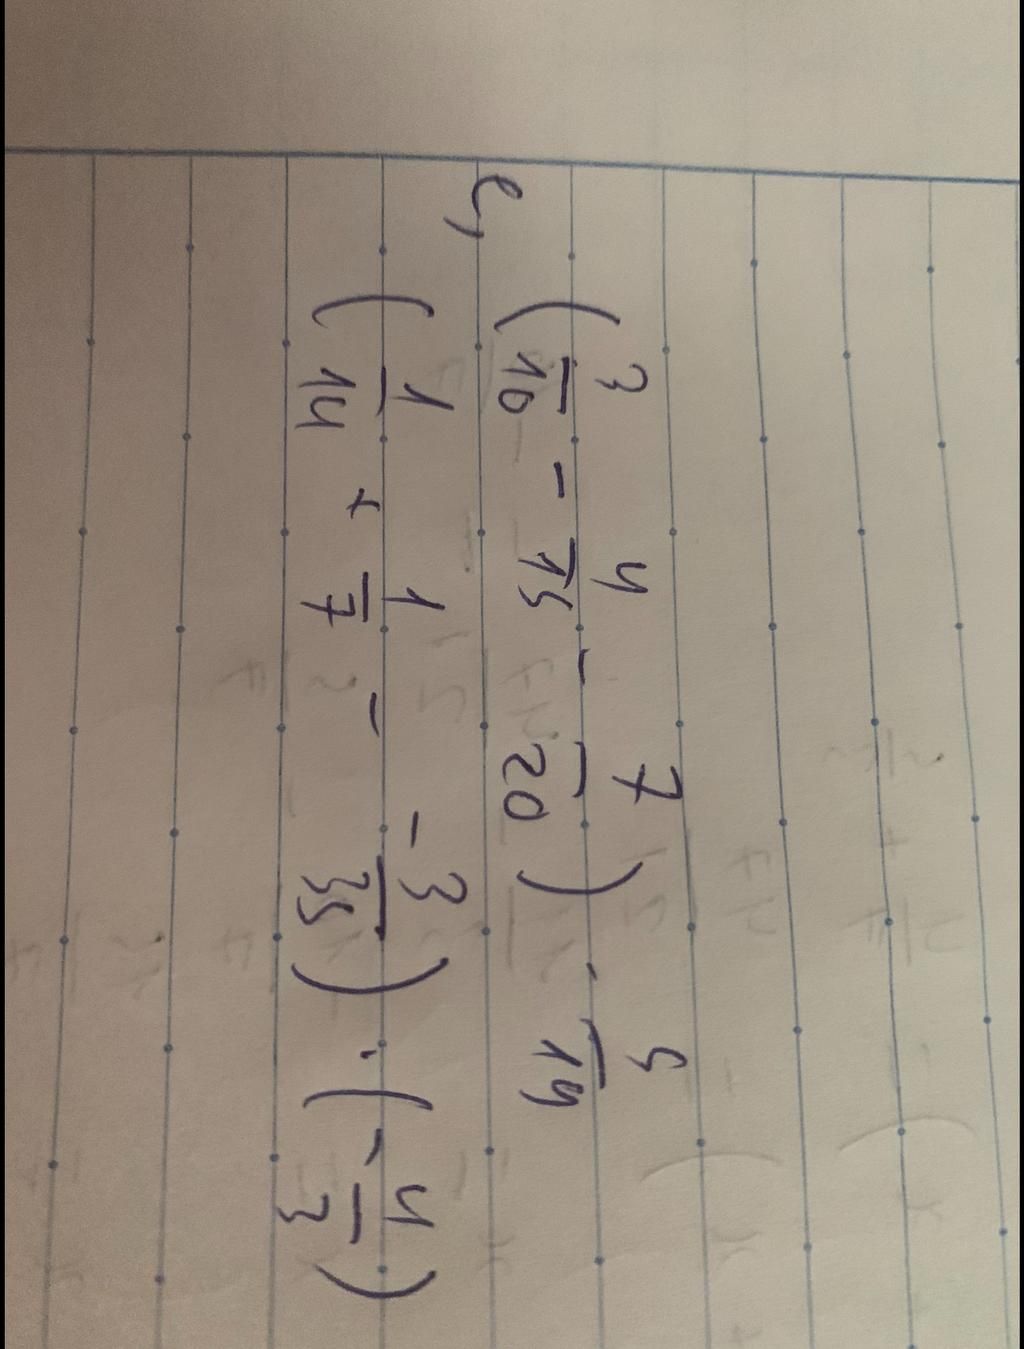 e, ( 3/10 - 4/15 - 7/20 ) · 5/19
( 1/14 + 1/7 - -3/35 ) · ( -4/3 )